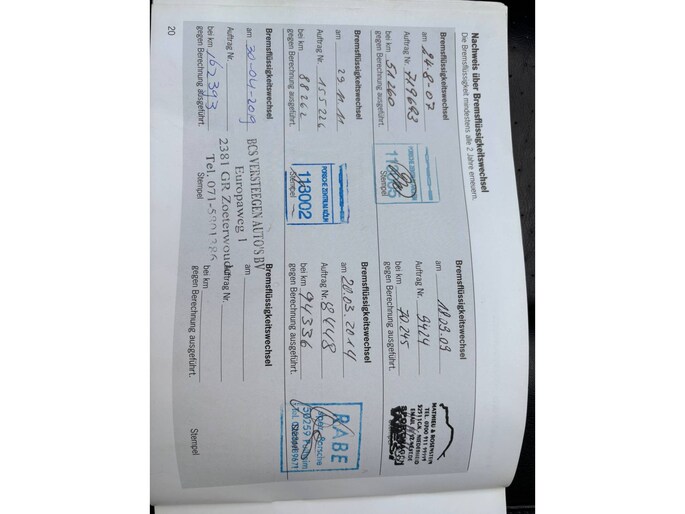 Nachweis über Bremsflüssigkeitswechsel
Die Bremsflüssigkeit mindestens alle 2 Jahre erneuern.
Bremsflüssigkeitswechsel
am 24-8-07
Auftrag Nr. 719683
bei km 51260
gegen Berechnung ausgeführt.
Stempel
PORSCHE ZENTRUM
Bremsflüssigkeitswechsel
am 18.09.09
Auftrag Nr. 9424
bei km 70245
gegen Berechnung ausgeführt.
MATTHIEU & ROSENSTEIN
Bremsflüssigkeitswechsel
am 29.11.11
Auftrag Nr. 155226
bei km 88262
gegen Berechnung ausgeführt.
Stempel
PORSCHE ZENTRUM KÖLN
113002
Bremsflüssigkeitswechsel
am 20.03.2014
Auftrag Nr. 8448
bei km 94336
gegen Berechnung ausgeführt.
RABE
50259
Bremsflüssigkeitswechsel
am 30-04-2019
Auftrag Nr.
bei km 162393
gegen Berechnung ausgeführt.
Stempel
BCS VERSTEEGEN AUTO'S BV
Europaweg 1
2381 GR Zoeterwoude
Tel. 071-
Bremsflüssigkeitswechsel
am
Auftrag Nr.
bei km
gegen Berechnung ausgeführt.
Stempel
20